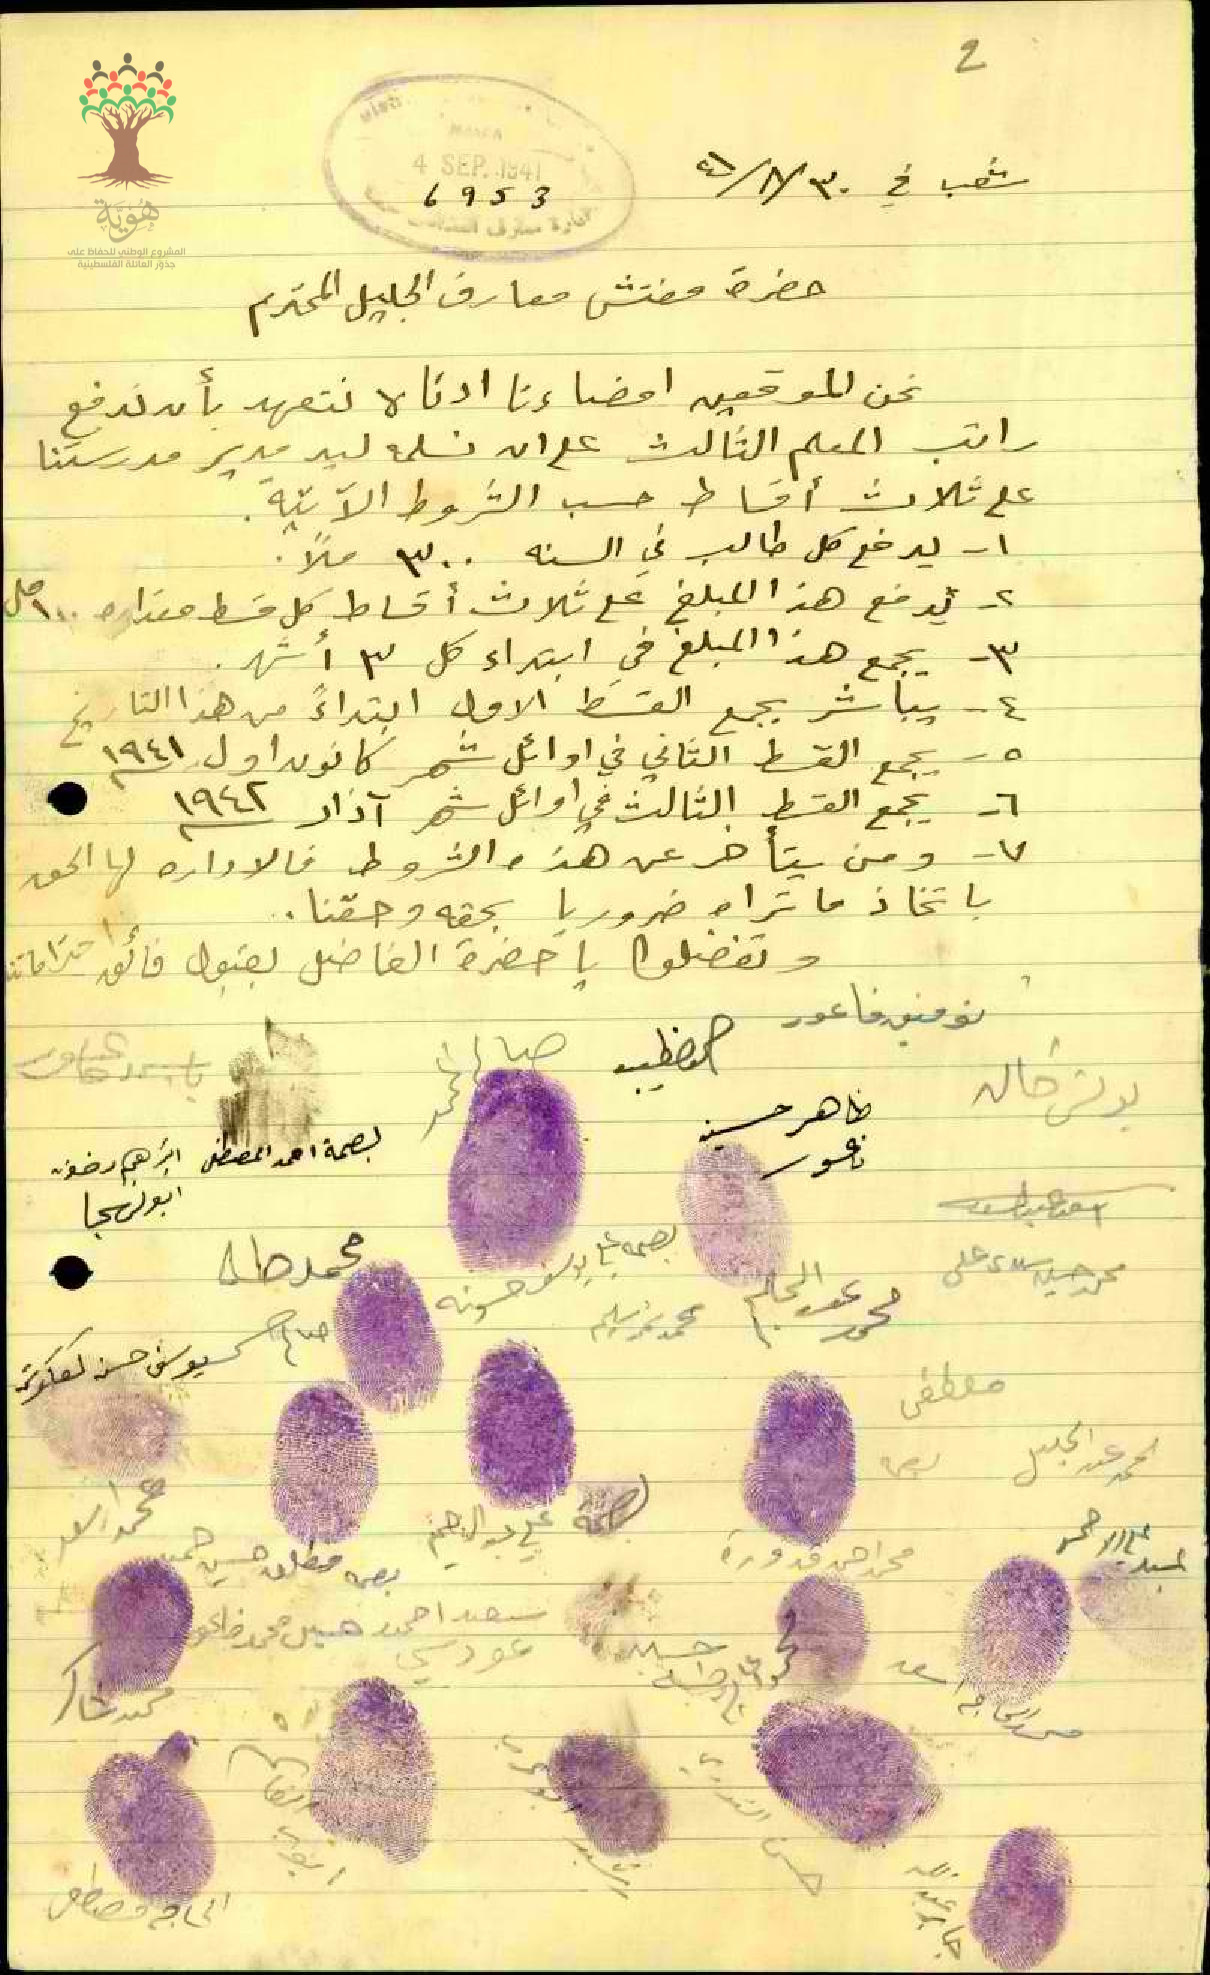 2
شعب في ٣٠/٨/٤١
HAIFA
4 SEP. 1941
6953
هُوِيَّة
المشروع الوطني للحفاظ على
جذور العائلة الفلسطينية
حضرة مفتش معارف الجليل المحترم
نحن الموقعين امضاءنا ادناه نتعهد بأن ندفع
راتب المعلم الثالث على ان نسلمه ليد مدير مدرستنا
على ثلاث أقساط حسب الشروط الآتية.
١- يدفع كل طالب في السنه ٣٠٠ ملاً.
٢- يدفع هذا المبلغ على ثلاث أقساط كل قسط مقداره ١٠٠ مل
٣- يجمع هذا المبلغ في ابتداء كل ٣ أشهر.
٤- يباشر بجمع القسط الاول ابتداءً من هذا التاريخ
٥- يجمع القسط الثاني في اوائل شهر كانون اول ١٩٤١
٦- يجمع القسط الثالث في أوائل شهر آذار ١٩٤٢
٧- ومن يتأخر عن هذه الشروط فالاداره لها الحق
باتخاذ ما تراه ضروريا بحقه وحقنا.
وتفضلوا يا حضرة الفاضل بقبول فائق احتراماتنا
توفيق فاعور
الخطيب
صالح
ظاهر حسين
فاعور
بصمة احمد المصطفى
ابراهيم رضوان
ابو الهيجا
محمد صالح
بصمة علي يوسف حسونه
محمد عبد الحليم
محمد نمر سليم
محمد حسين
صالح
يوسف حسن
مصطفى
محمد عبد الجليل
بصمة
محمد اسعد
بصمة علي عبد الرحيم
بصمة مطلق حسين حميد
محمد احمد قدورة
سعيد احمد حسين محمد فاعور
محمد شاكر
محمد الحاج اسعد
الحاج مصطفى